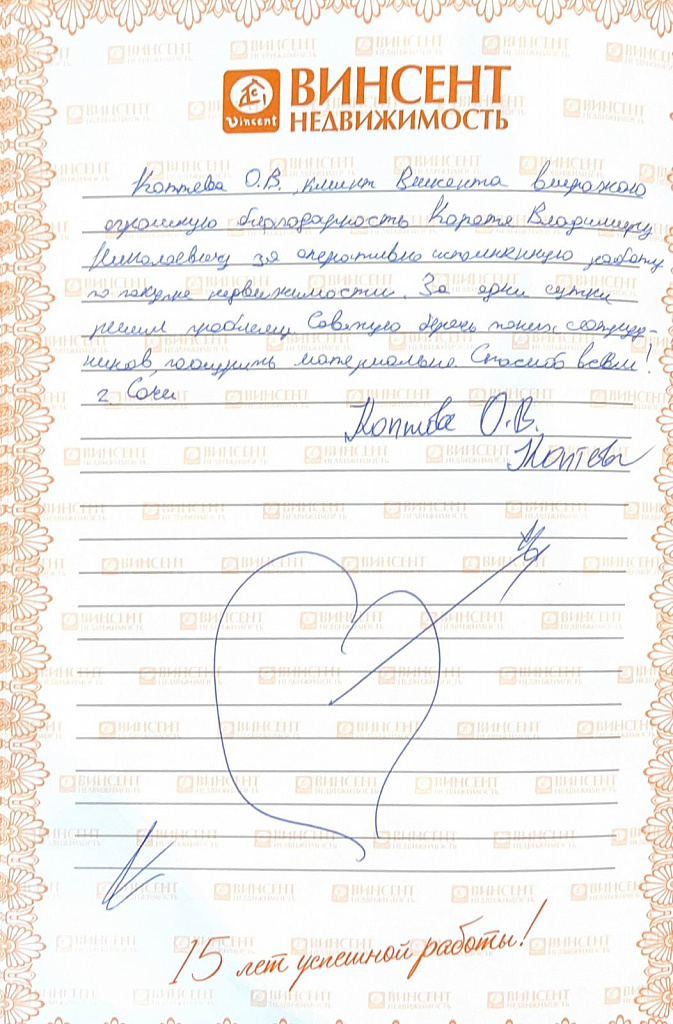 ВИНСЕНТ
НЕДВИЖИМОСТЬ
Vincent
Коптева О.В., клиент Винсента выражаю
огромную благодарность Владимиру
Николаевичу за оперативно исполненную работу
по покупке недвижимости. За одни сутки
решил проблему. Советую беречь таких сотруд-
ников, поощрить материально. Спасибо всем!
г. Сочи
Коптева О.В.
Коптева
15 лет успешной работы!